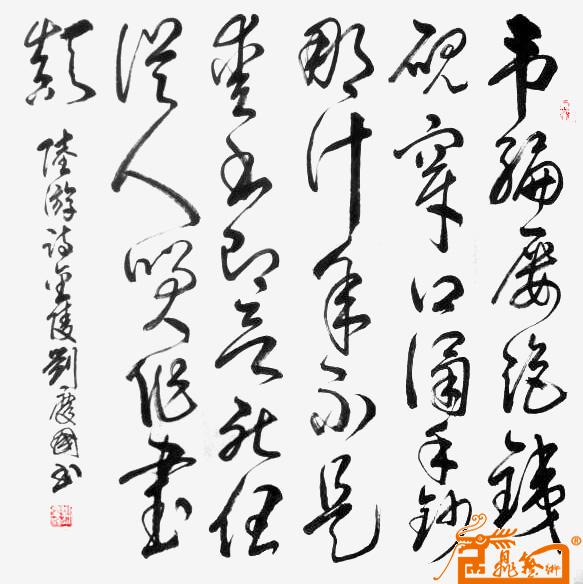 韦编屡绝铁
砚穿口诵手钞
那计年不是
爱书即欲死任
从人笑作书
颠
陆游诗金陵刘庆国书